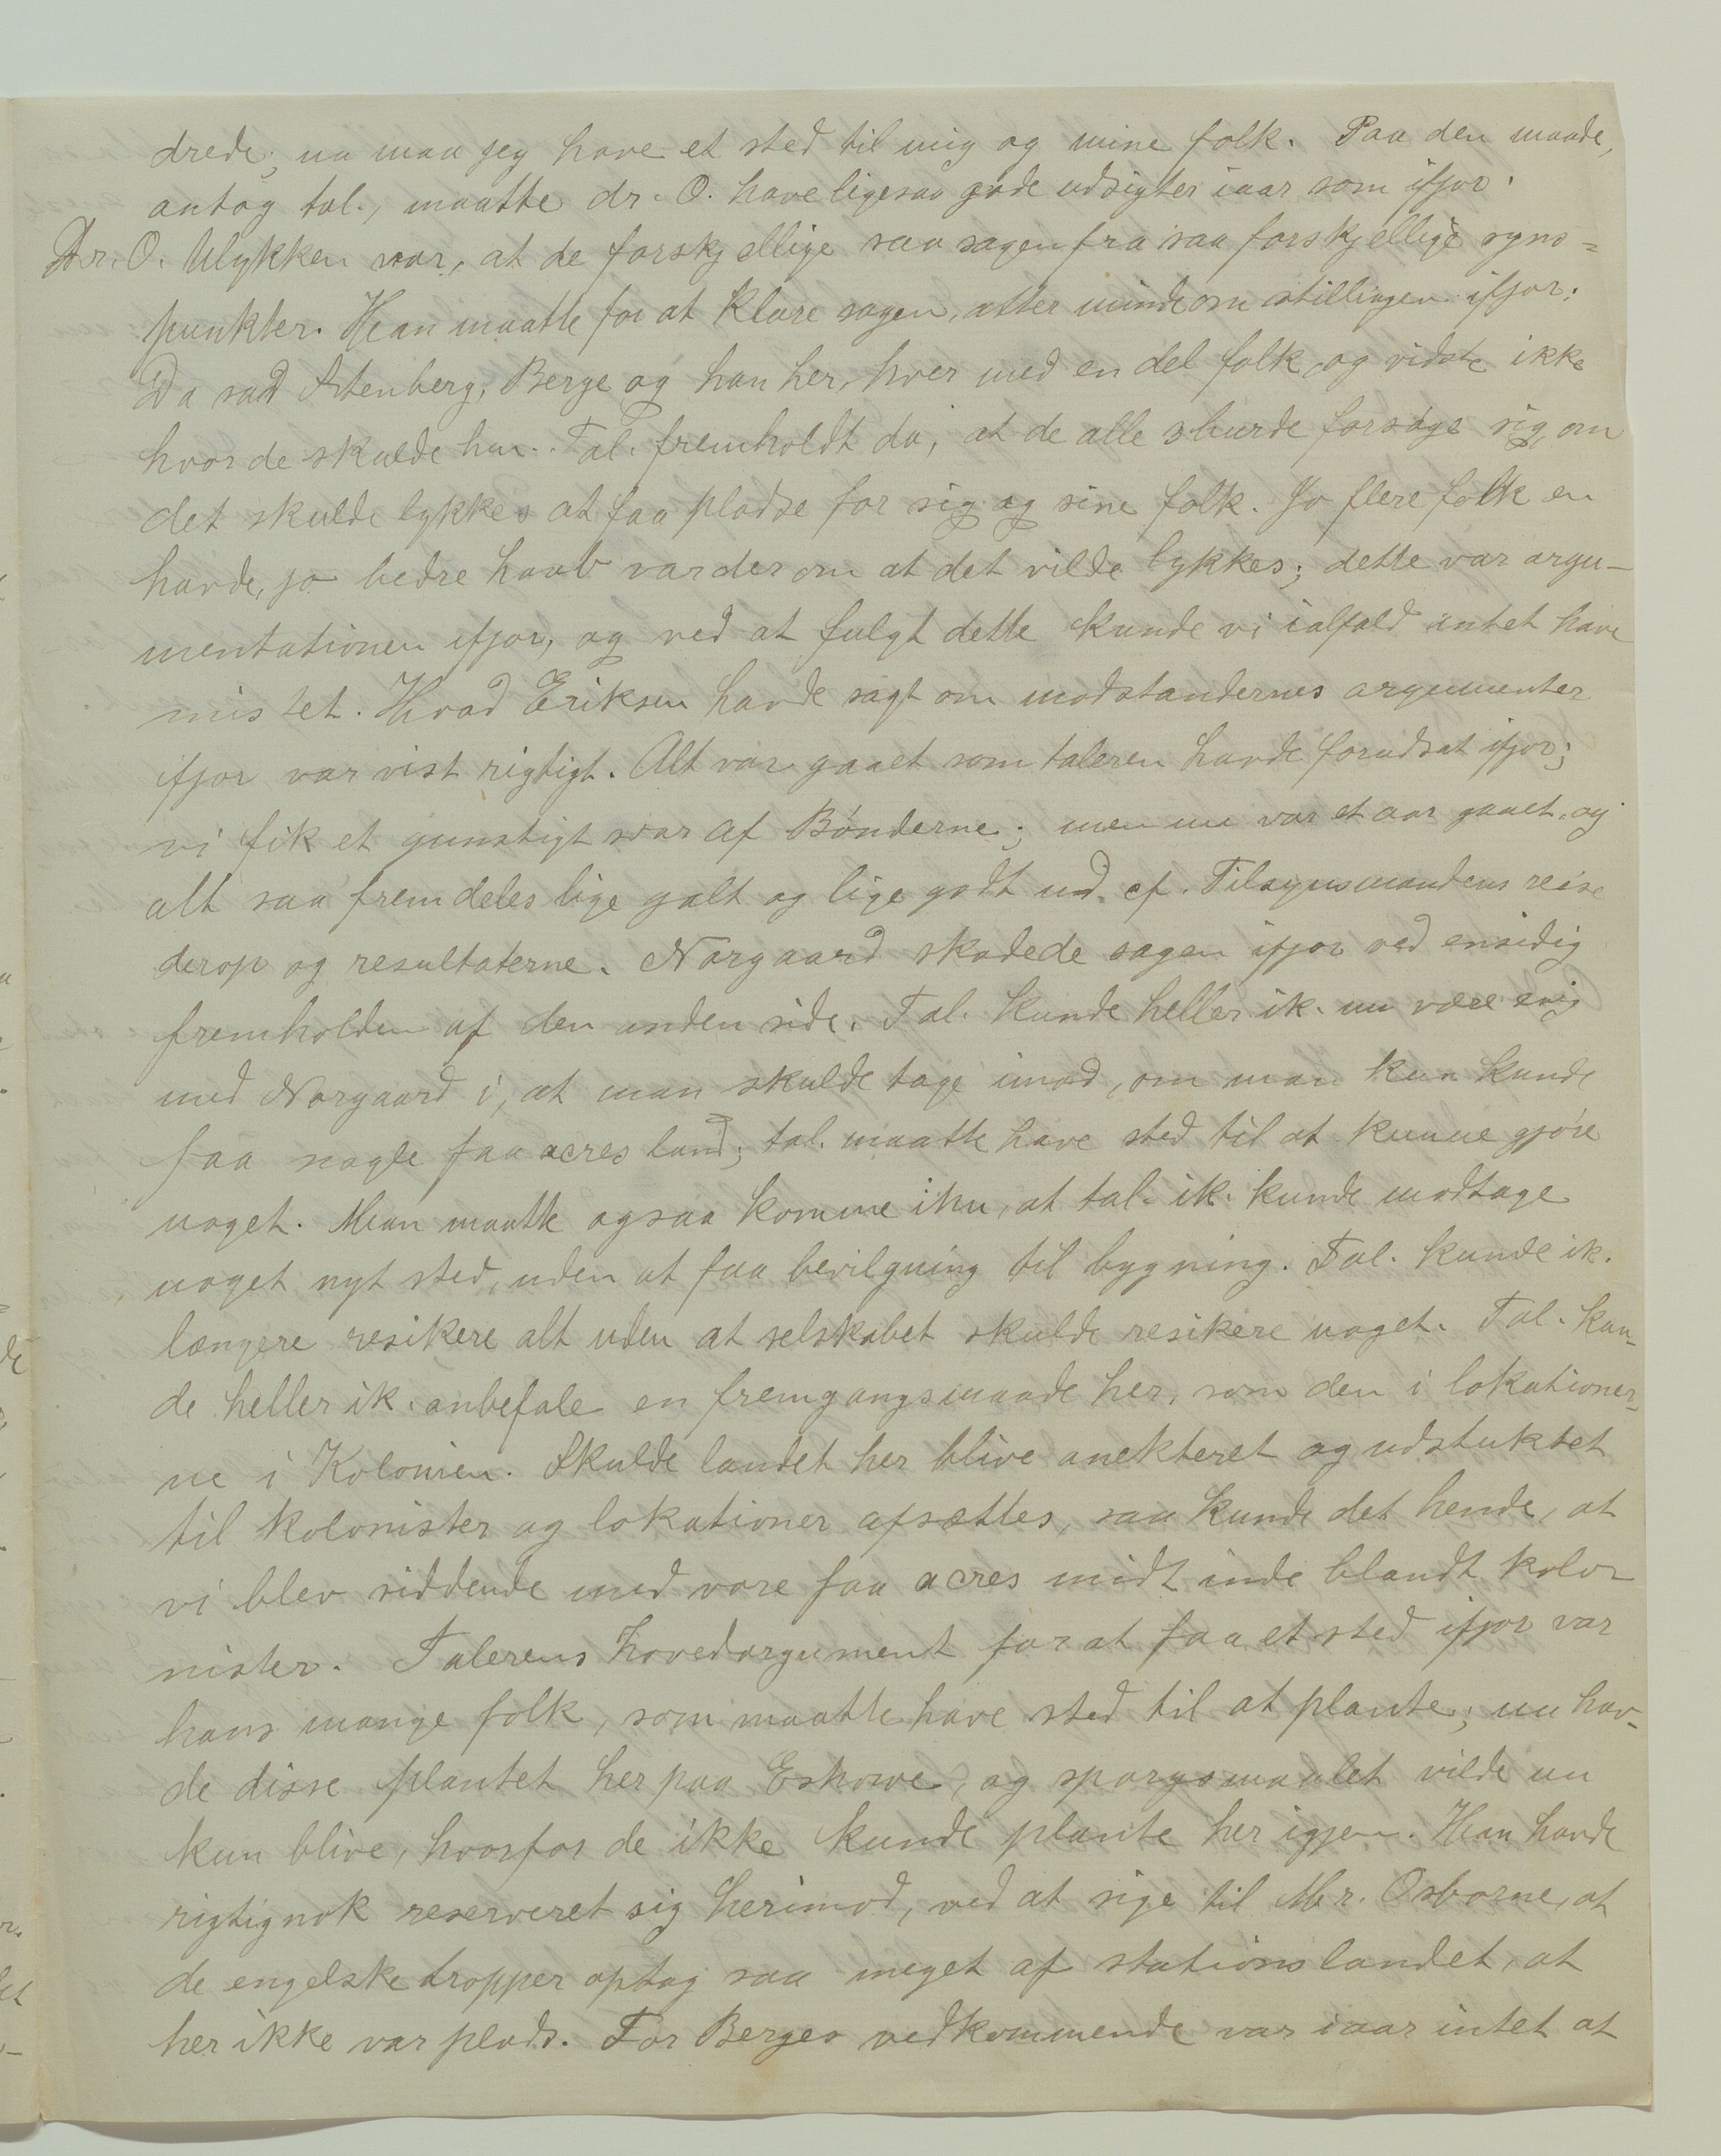 drede; nu maa jeg have et sted til mig og mine folk. Paa den maade,
antog tal., maatte dr. O. have ligesaa gode udsigter iaar som ifjor.
Dr. O. Ulykken var, at de forskjellige saa sagen fra saa forskjellige syns-
punkter. Han maatte for at klare sagen, atter minde om stillingen ifjor:
Da sad Stenberg, Berge og han her, hver med en del folk, og vidste ikke
hvor de skulde hen. Tal. fremholdt da, at de alle 3 burde forsøge sig, om
det skulde lykkes at faa pladse for sig og sine folk. Jo flere folk en
havde, jo bedre haab var der om at det vilde lykkes; dette var argu-
mentationen ifjor, og ved at fulgt dette kunde vi ialfald intet have
mistet. Hvad Eriksen havde sagt om modstandernes argumenter
ifjor var vist rigtigt. Alt var gaaet som taleren havde forudsat ifjor;
vi fik et gunstigt svar af Bønderne; men nu var et aar gaaet, og
alt saa fremdeles lige galt og lige godt ud. cf. Tilsynsmandens reise
derop og resultaterne. Norgaard skadede sagen ifjor ved ensidig
fremholden af den anden side. Tal. kunde heller ik. nu være enig
med Norgaard i, at man skulde tage imod, om man kun kunde
faa nogle faa acres land; tal. maatte have sted til at kunne gjøre
noget. Man maatte ogsaa komme ihu, at tal. ik. kunde modtage
noget nyt sted, uden at faa bevilgning til bygning. Tal. kunde ik.
længere resikere alt uden at selskabet skulde resikere noget. Tal. kun-
de heller ik. anbefale en fremgangsmaade her, som den i lokationer-
ne i Kolonien. Skulde landet her blive anekteret og udstuktet
til kolonister og lokationer afsættes, saa kunde det hende, at
vi blev siddende med vore faa acres midt inde blandt kolo-
nister. Talerens hovedargument for at faa et sted ifjor var
hans mange folk, som maatte have sted til at plante; nu hav-
de disse plantet her paa Eshowe, og spørgsmaalet vilde nu
kun blive, hvorfor de ikke kunde plante her igjen. Han havde
rigtignok reserveret sig herimod, ved at sige til Mr. Osborne, at
de engelske tropper optog saa meget af stationslandet, at
her ikke var plads. For Berges vedkommende var iaar intet at